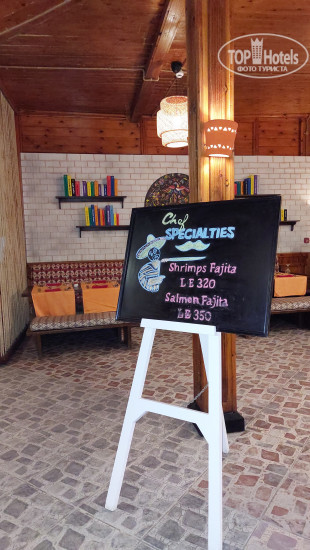 TOPHotels
ФОТО ТУРИСТА
Chef
SPECIALTIES
Shrimps Fajita
L E 320
Salmon Fajita
LE 350